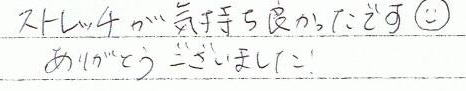 ストレッチが気持ち良かったです☺
ありがとうございました!